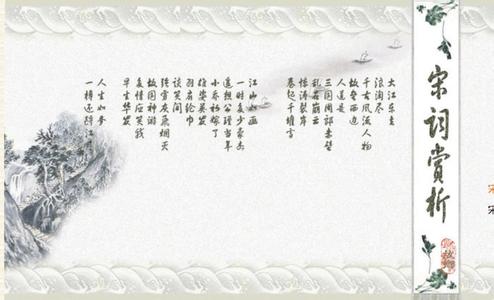 宋词赏析
大江东去
浪淘尽
千古风流人物
故垒西边
人道是
三国周郎赤壁
乱石崩云
惊涛裂岸
卷起千堆雪
江山如画
一时多少豪杰
遥想公瑾当年
小乔初嫁了
雄姿英发
羽扇纶巾
谈笑间
灰飞烟灭
故国神游
多情应笑我
早生华发
人生如梦
一樽还酹江月
宋
宋